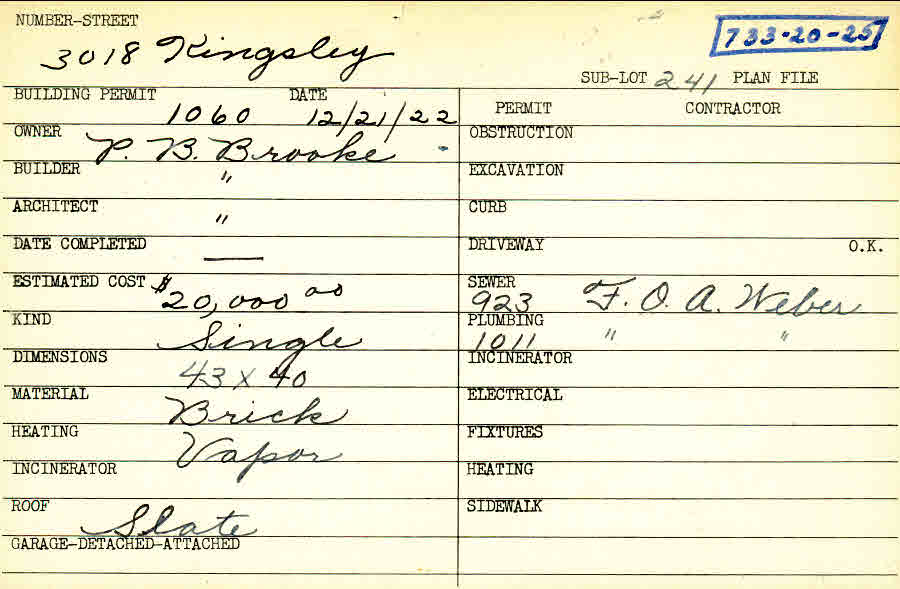 NUMBER-STREET
3018 Kingsley
733-20-25
SUB-LOT 241 PLAN FILE
BUILDING PERMIT DATE
1060 12/21/22
PERMIT CONTRACTOR
OWNER P. B. Brooke
OBSTRUCTION
BUILDER "
EXCAVATION
ARCHITECT "
CURB
DATE COMPLETED —
DRIVEWAY O.K.
ESTIMATED COST $20,000 00
SEWER
923 F. O. A. Weber
KIND Single
PLUMBING
1011 " "
DIMENSIONS 43 x 40
INCINERATOR
MATERIAL Brick
ELECTRICAL
HEATING Vapor
FIXTURES
INCINERATOR
HEATING
ROOF Slate
SIDEWALK
GARAGE-DETACHED-ATTACHED